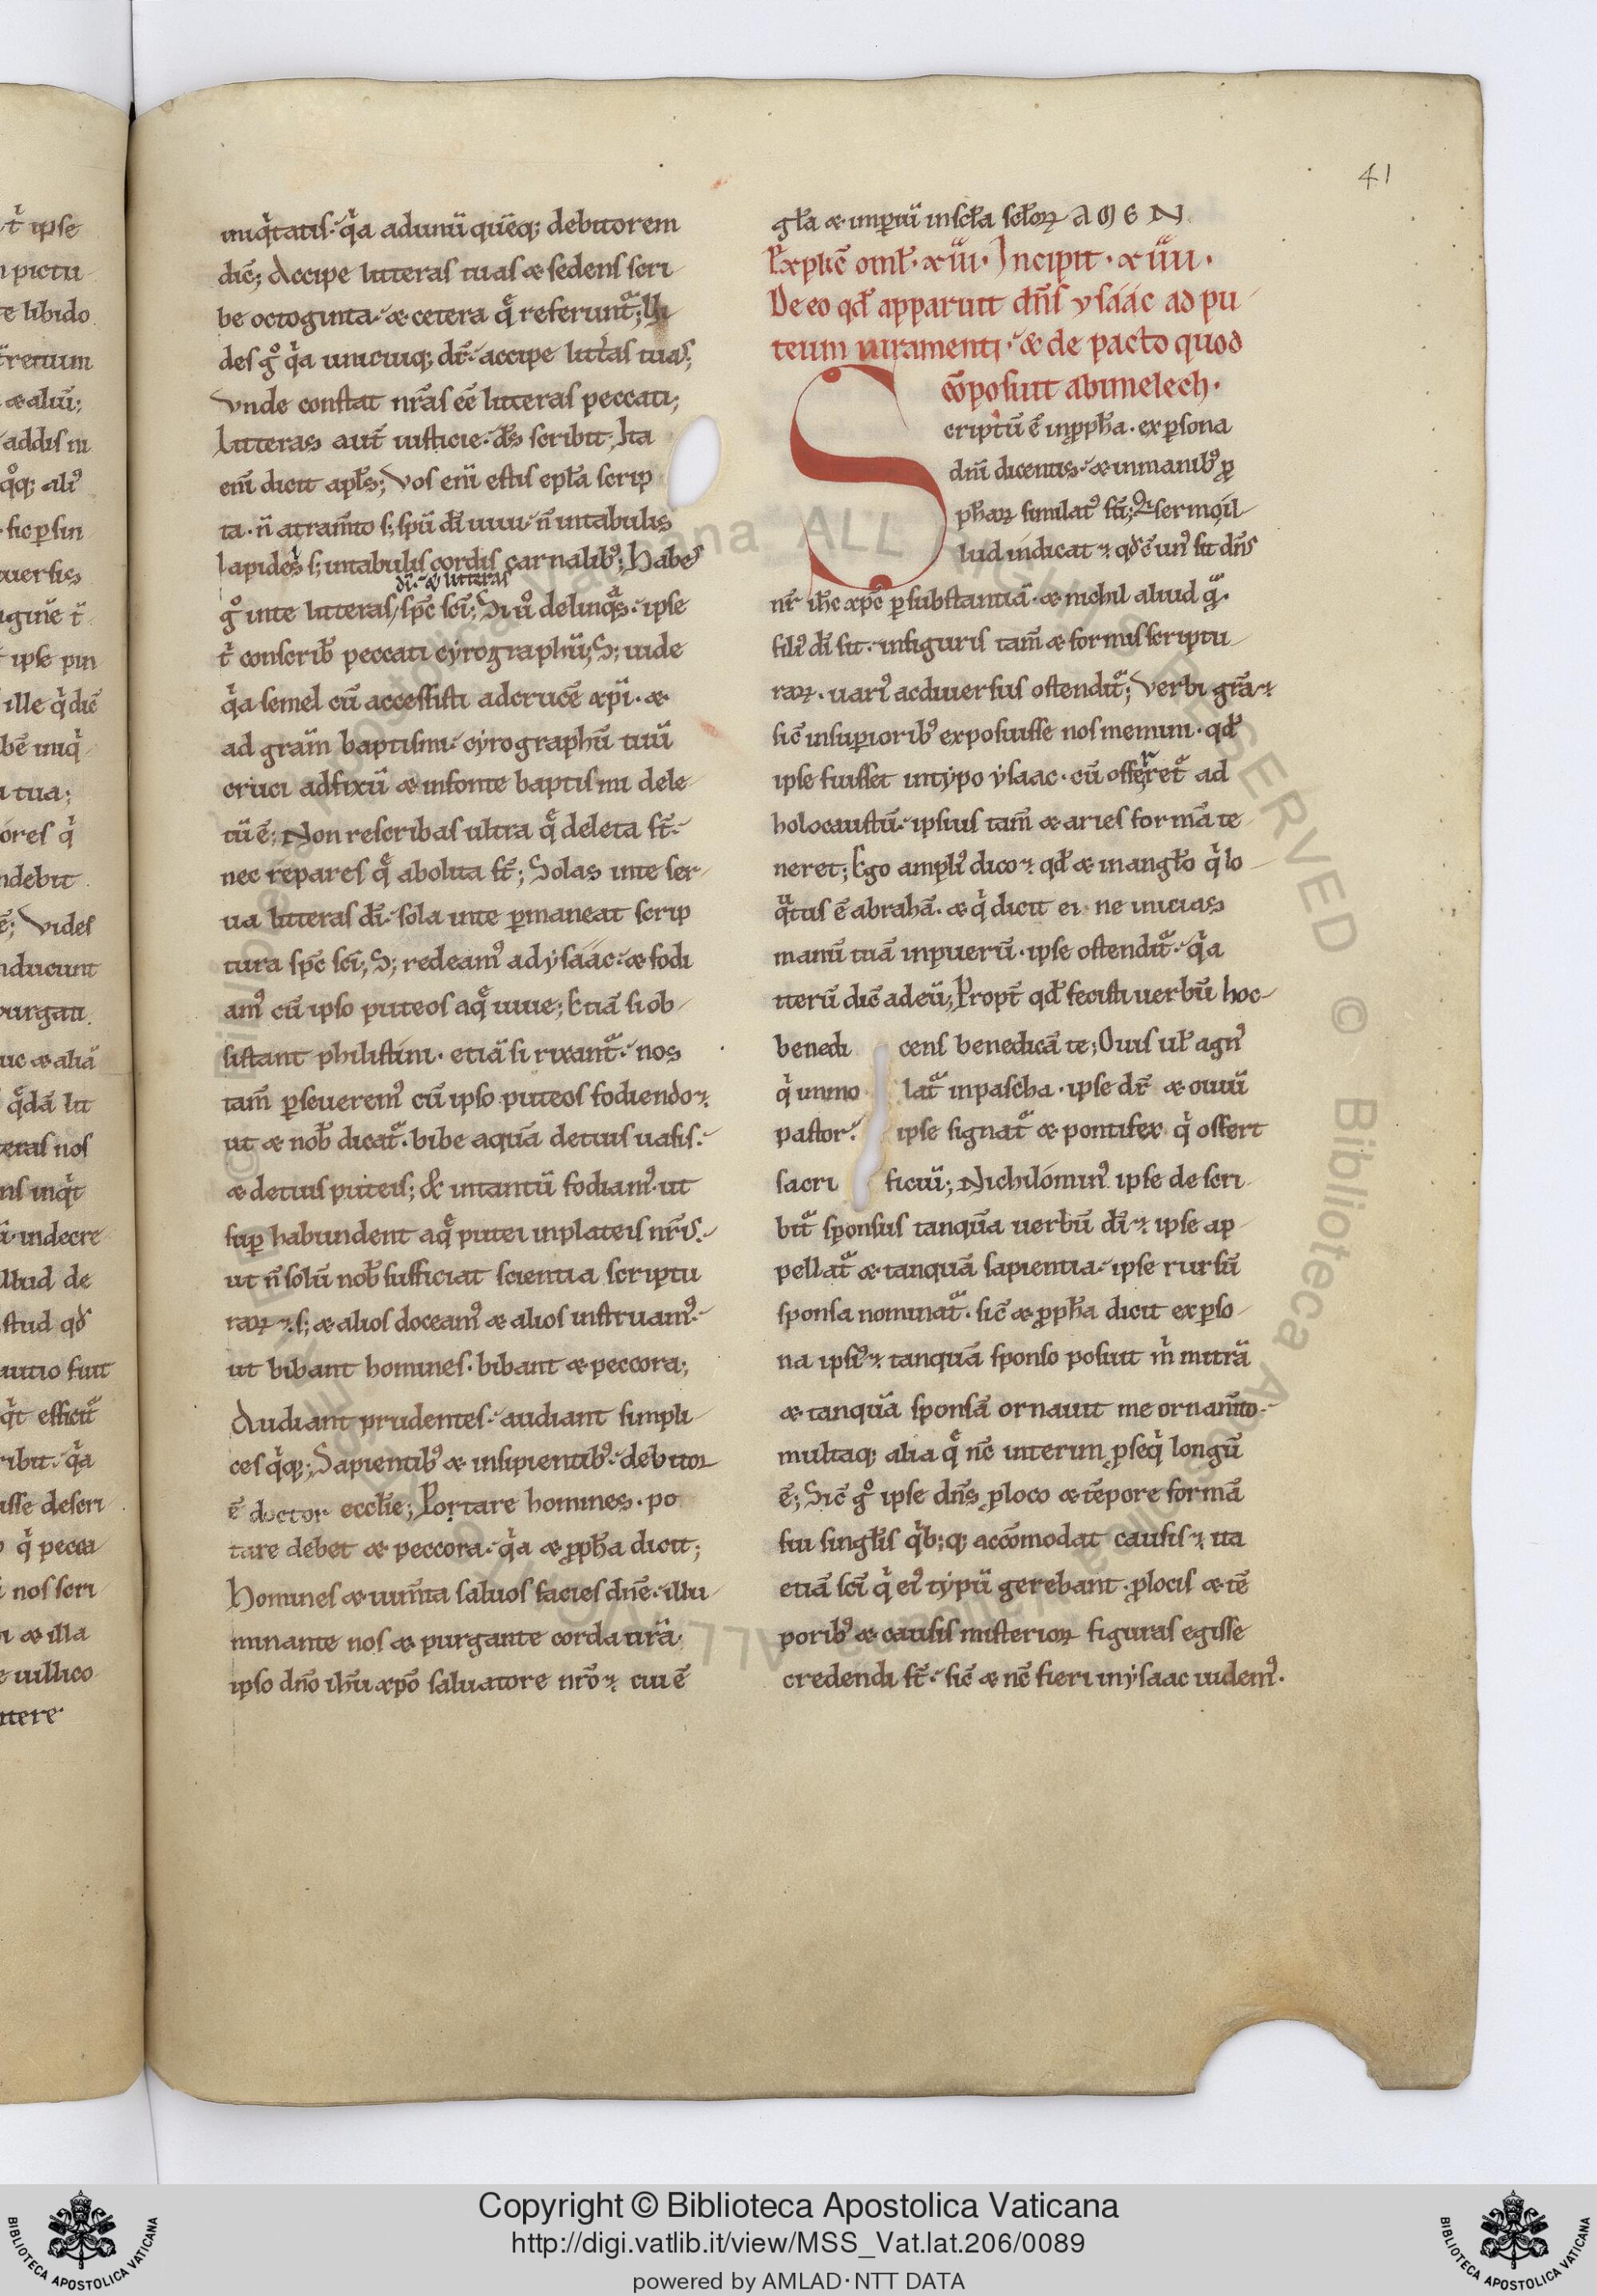 41
iniq̇tatis. q̇a ad unū quēq; debitorem
dic̄; Accipe litteras tuas æ sedens scri
be octoginta. æ cetera q̄ referunt᷑; Ui
des gͦ q̇a unicuiq; dr̄. accipe litt̄as tuas;
Unde constat nr̄as ēē litteras peccati;
Litteras aut̄ iusticie. ds̄ scribit. Ita
eni dicit apl̄s; Vos eni estis epl̄a scrip
ta. n̄ atram̄to s; spū dī uiui. n̄ in tabulis
lapideis s; in tabulis cordis carnalib᷒; Habes
dī. & litteras
gͦ in te litteras sp̄c sc̄i; Si uͦ delinq̄s. ipse
t̄ conscrib̄ peccati cyrographū; S; uide
q̇a semel cū accessisti ad crucē xp̄i. æ
ad grām baptismi. cyrographū tuū
cruci adfixū æ in fonte baptismi dele
tū ē; Non rescribas ultra q̄ deleta st̄.
nec repares q̄ abolita st̄; Solas in te ser
ua litteras dī. sola in te p̄maneat scrip
tura sp̄c sc̄i; S; redeam᷒ ad ysaac. æ fodi
am᷒ cū ipso puteos aq̄ uiue; Etiā si ob
sistant philistini. etiā si rixant᷑. nos
tam̄ p̄seuerem᷒ cū ipso puteos fodiendo.
ut æ nob̄ dicat᷑. bibe aquā de tuis uasis.
æ de tuis puteis; & in tantū fodiam᷒ ut
sup̄ habundent aq̄ putei in plateis nr̄is.
ut n̄ solū nob̄ sufficiat scientia scriptu
raꝝ. s; æ alios doceam᷒ æ alios instruam᷒.
ut bibant homines. bibant æ peccora;
Audiant prudentes. audiant simpli
ces q̇q;; Sapientib᷒ æ insipientib᷒. debitor
ē doctor eccl̄ie; Portare homines. po
tare debet æ peccora. q̇a æ ꝓph̄a dicit;
Homines æ ium̄ta saluos facies dn̄e. illu
minante nos æ purgante corda ur̄a.
ipso dn̄o ih̄u xp̄o saluatore nr̄o. cui ē
gl̄a æ imperiū in scl̄a scl̄oꝝ AMEN
Explic̄ oml̄. xiii. Incipit. xiiii.
De eo qd̄ apparuit dn̄s ysaac ad pu
teum iuramenti. & de pacto quod
cōposuit abimelech.
Scriptū ē in ꝓph̄a. ex p̄sona
dn̄i dicentis. æ in manib᷒ ꝓ
ph̄aꝝ similat᷒ sū; Q̇ sermo il
lud indicat. qd̄ c̄ un᷒ sit dn̄s
nr̄ ih̄c xp̄c p̄ substantiā. æ nichil aliud q̄.
fili᷒ dī sit. in figuris tam̄ æ formis scriptu
raꝝ. uari᷒ ac diuersus ostendit᷑; Verbi gr̄a.
sic̄ in superiorib᷒ exposuisse nos memini. qd̄
ipse fuisset in typo ysaac. cū offerret᷑ ad
holocaustū. ipsius tam̄ æ aries formā te
neret; Ego ampli᷒ dico. qd̄ æ in angl̄o q̇ lo
q̄tus ē abrahā. æ q̇ dicit ei. ne inicias
manū tuā in puerū. ipse ostendit᷑. q̇a
iterū dic̄ ad eū; Propt̄ qd̄ fecisti uerbū hoc
benedi cens benedicā te; Ouis ul̄ agn᷒
q̇ immo lat᷑ in pascha. ipse dr̄ æ ouiū
pastor. ipse signat᷑ æ pontifex q̇ offert
sacri ficiū; Nichilomin᷒ ipse descri
bit᷑ sponsus tanquā uerbū dī. ipse ap
pellat᷑ æ tanquā sapientia. ipse rursū
sponsa nominat᷑. sic̄ æ ꝓph̄a dicit ex p̄so
na ipsi᷒. tanquā sponso posuit m̄ mitrā
æ tanquā sponsā ornauit me ornam̄to.
multaq; alia q̄ nc̄ interim ꝓseq̇ longū
ē; Sic̄ gͦ ipse dn̄s ꝓ loco æ tēpore formā
sui singl̄is q̇b;q; accōmodat causis. ita
etiā sc̄i q̇ ei᷒ typū gerebant. ꝓ locis æ tē
porib᷒ æ causis misterioꝝ figuras egisse
credendi st̄. sic̄ æ nc̄ fieri in ysaac uidem᷒.
Copyright © Biblioteca Apostolica Vaticana
http://digi.vatlib.it/view/MSS_Vat.lat.206/0089
powered by AMLAD·NTT DATA